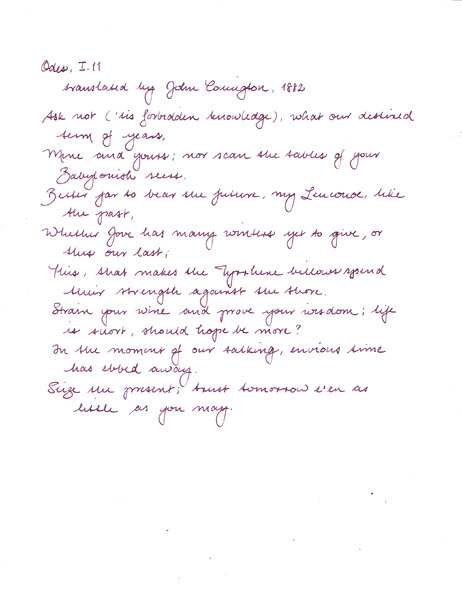 Odes, I.11
translated by John Conington, 1882
Ask not ('tis forbidden knowledge), what our destined
term of years,
Mine and yours; nor scan the tables of your
Babylonish seers.
Better far to bear the future, my Leuconoe, like
the past,
Whether Jove has many winters yet to give, or
this our last;
This, that makes the Tyrrhene billows spend
their strength against the shore.
Strain your wine and prove your wisdom; life
is short, should hope be more?
In the moment of our talking, envious time
has ebbed away.
Seize the present; trust tomorrow e'en as
little as you may.